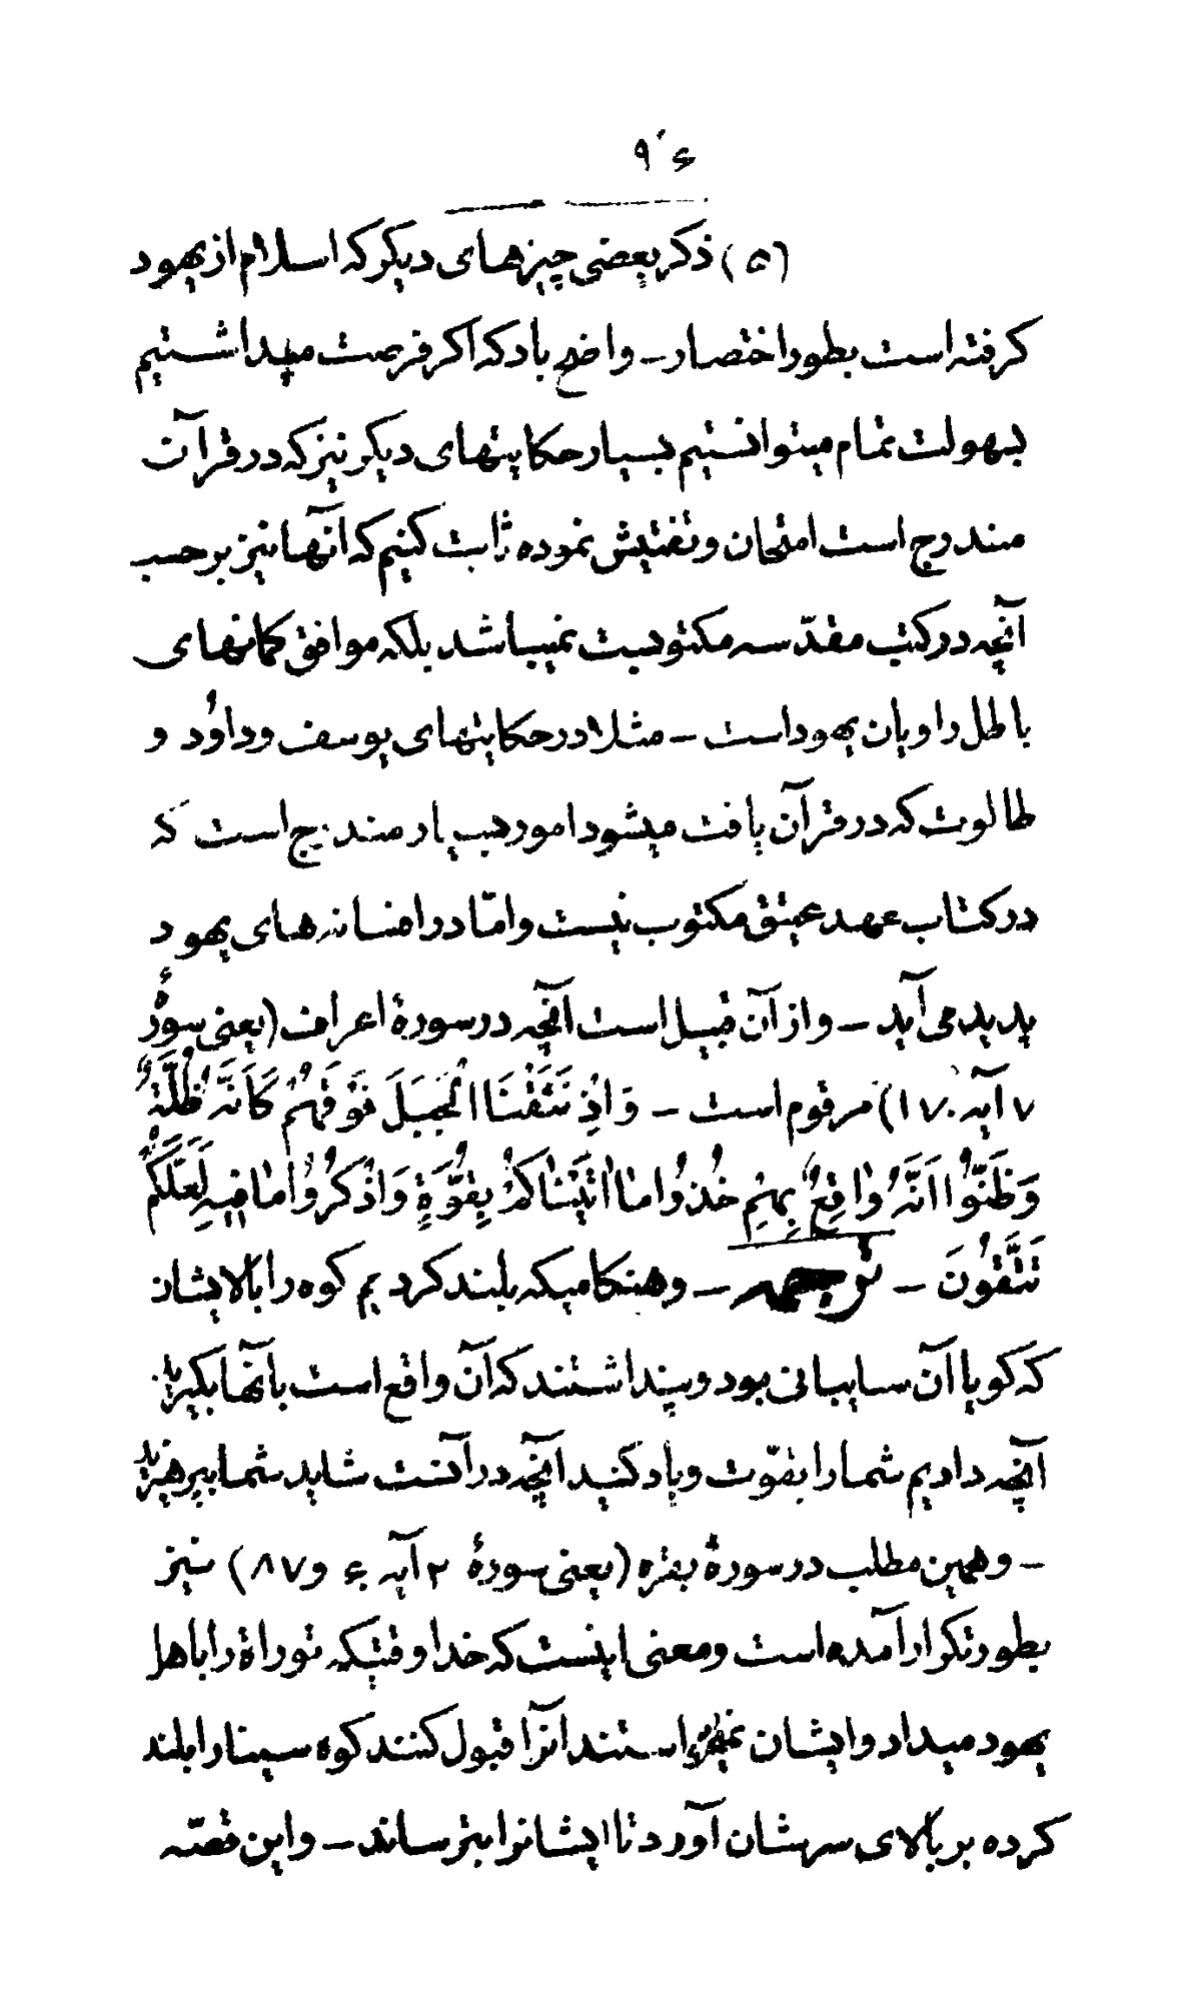 ۹۶
(۵) ذکر بعضی چیزهای دیکر که اسلام از یهود
کرفته است بطور اختصار ــ واضح باد که اکر فرصت میداشتیم
بسهولت تمام میتوانستیم بسیار حکایتهای دیکر نیز که در قرآن
مندرج است امتحان و تفتیش نموده ثابت کنیم که آنها نیز بر حسب
آنچه در کتب مقدّسه مکتوبست نمیباشد بلکه موافق کمانهای
باطل راویان یهود است ــ مثلا در حکایتهای یوسف و داوُد و
طالوت که در قرآن یافت میشود امور بسیار مندرج است که
در کتاب عهد عیتق مکتوب نیست و امّا در افسانه های یهود
پدید می آید ــ و از آن قبیل است آنچه در سورهٔ اعراف (یعنی سورهٔ
۷ آیه ۱۷۰) مرقوم است ــ وَاِذْ نَتَقْنَا الْجَبَلَ فَوْقَهُمْ كَاَنَّهُ ظُلَّةٌ
وَظَنّوُا اَنَّهُ وَاقِعٌ بِهِمْ خُذوُا ما اتَيْناكُمْ بِقُوَّةٍ وَاذْكُرُوُا ما فيهِ لَعَلَّكُمْ
تَتَّقوُنَ ــ ترجمه ــ و هنکامیکه بلند کردیم کوه را بالایشان
که کویا آن سایبانی بود و پنداشتند که آن واقع است بآنها بکیرید
آنچه دادیم شما را بقوّت و یاد کنید آنچه در آنست شاید شما بپرهیزید
ــ و همین مطلب در سورهٔ بقره (یعنی سورهٔ ۲ آیه ۶۰ و ۸۷) نیز
بطور تکرار آمده است و معنی اینست که خدا وقتیکه توراة را باهل
یهود میداد و ایشان نمیخواستند آنرا قبول کنند کوه سینا را بلند
کرده بر بالای سرشان آورد تا ایشانرا بترساند ــ و این قصّه